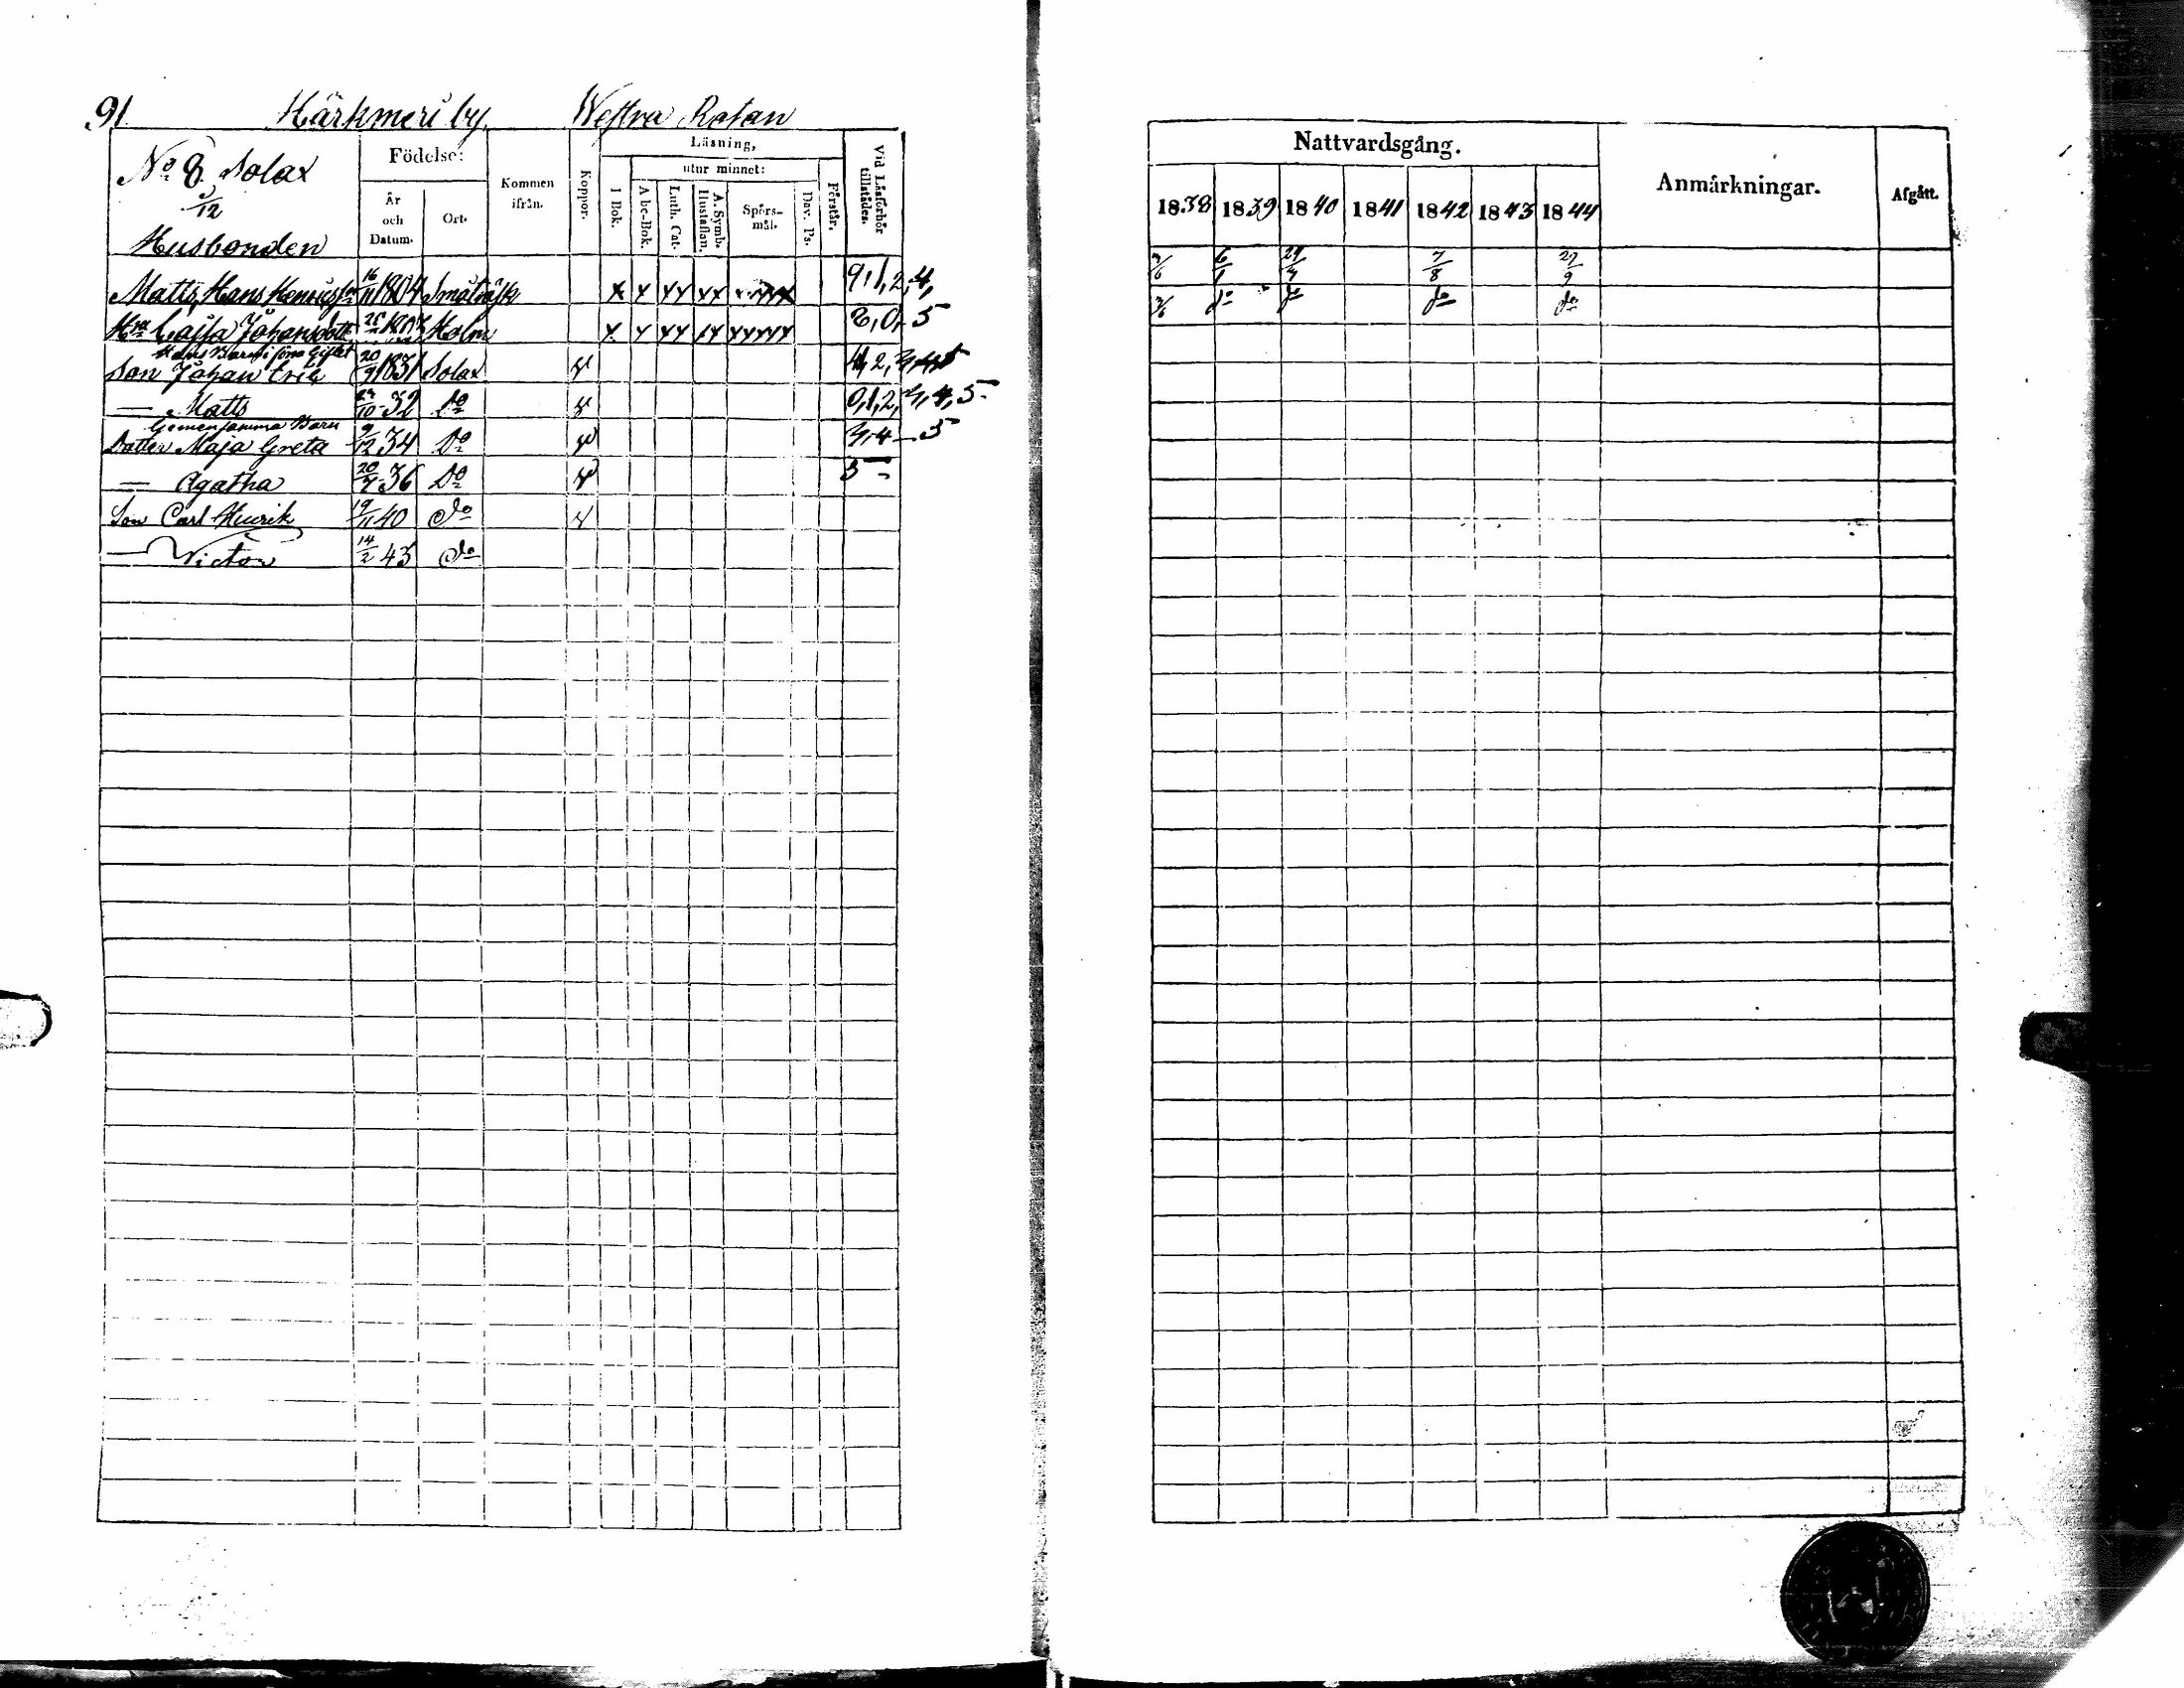 91. Härkmeri by. Westra Rotan
No 8. Solax
/12
Husbonden
Födelse:
År och Datum.
Ort.
Kommen ifrån.
Koppor.
Läsning,
utur minnet:
I Bok.
A be-Bok.
Luth. Cat.
A. Symb. Hustaflan.
Spörs-mål.
Dav. Ps.
Förstår.
Vid Läsförhör tillstädes.
Matts Hans Henriksson 16/11 1804 Småträsk x x xx xx 9,1,2,4,
Hru Cajsa Johansdotter Holm x x xx xx xxxxx 5
Hans Barn i förra Giftet
Son Johan Eric 20/9 1831 Solax x
— Matts 32 Do x 0,1,2, 4,5-
Gemensamma Barn
Dotter Maja Greta 9/12 34 Do x 4 - 5
— Agatha 36 Do x 5 -
Son Carl Henrik 19/11 40 do x
— Victor 14/2 43 do
Nattvardsgång.
1838 1839 1840 1841 1842 1843 1844
Anmärkningar.
Afgått.
6/1 7/8 27/9
do do do do